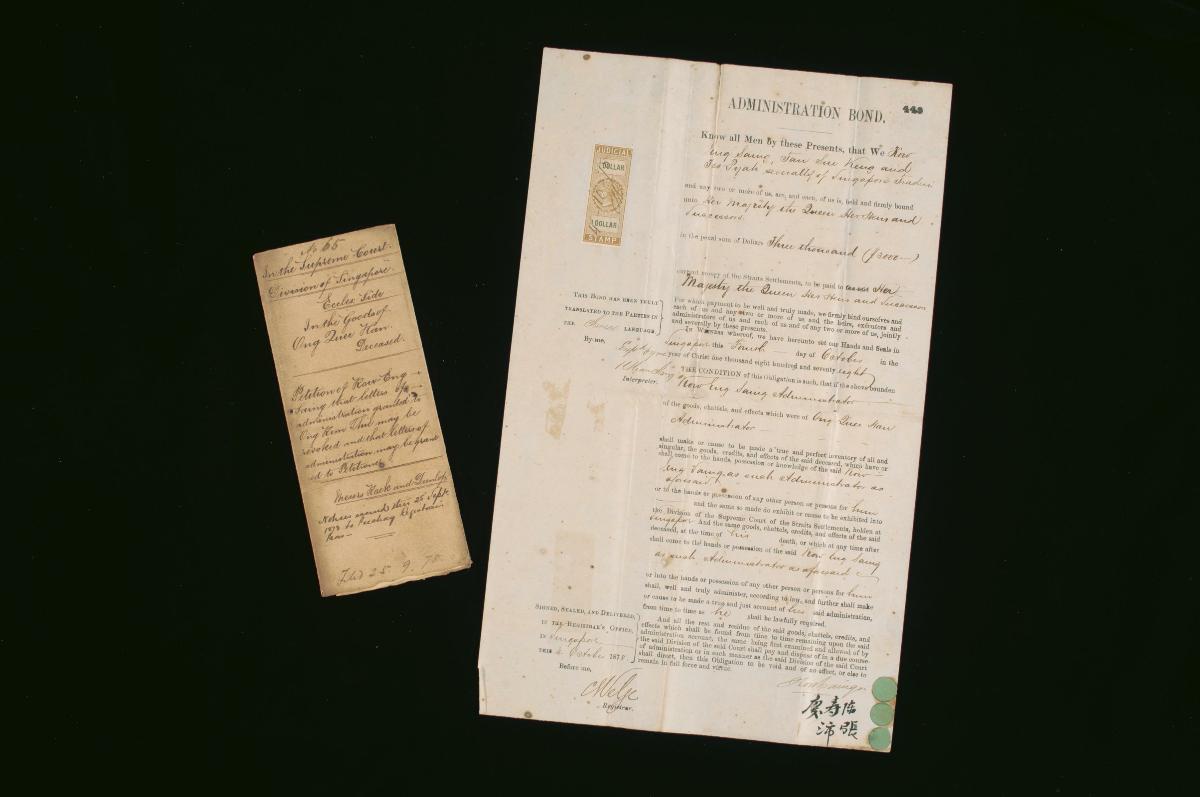 No 65
In the Supreme Court.
Division of Singapore.
Eccles Side
In the Goods of
Ong Quee Han.
Deceased.
Petition of Kow Eng
Saing that letters of
administration granted to
Ong Kim Thu may be
revoked and that letters of
administration may be grant
ed to Petitioner
Messrs and Dunlop
Notices issued this 25 Sept
1878 to
Filed 25. 9. 78
ADMINISTRATION BOND.
449
Know all Men by these Presents, that We Kow
Eng Saing, Tan Sue Keng and
Teo Pyah severally of Singapore Traders
and any two or more of us, are, and each, of us is, held and firmly bound
unto Her Majesty the Queen Her Heirs and
Successors.
in the penal sum of Dollars Three thousand ($3000—)
current money of the Straits Settlements, to be paid to Her
Majesty the Queen Her Heirs and Successors
For which payment to be well and truly made, we firmly bind ourselves and
each of us and any two or more of us and the heirs, executors and
administrators of us and each of us and of any two or more of us, jointly
and severally by these presents.
In Witness whereof, we have hereunto set our Hands and Seals in
Singapore this Fourth day of October in the
year of Christ one thousand eight hundred and seventy eight
THE CONDITION of this Obligation is such, that if the above bounden
Kow Eng Saing Administrator
of the goods, chattels, and effects which were of Ong Quee Han
Administrator
shall make or cause to be made a true and perfect inventory of all and
singular, the goods, credits, and effects of the said deceased, which have or
shall come to the hands, possession or knowledge of the said Kow
Eng Saing as such Administrator as
aforesaid
or to the hands or possession of any other person or persons for him
and the same so made do exhibit or cause to be exhibited into
the Division of the Supreme Court of the Straits Settlements, holden at
Singapore And the same goods, chattels, credits, and effects of the said
deceased, at the time of his death, or which at any time after
shall come to the hands or possession of the said Kow Eng Saing
as such Administrator as aforesaid
or into the hands or possession of any other person or persons for him
shall, well and truly administer, according to law, and further shall make
or cause to be made a true and just account of his said administration,
from time to time as he shall be lawfully required.
And all the rest and residue of the said goods, chattels, credits, and
effects which shall be found from time to time remaining upon the said
administration account, the same being first examined and allowed of by
the said Division of the said Court shall pay and dispose of in a due course
of administration or in such manner as the said Division of the said Court
shall direct, then this Obligation to be void and of no effect, or else to
remain in full force and virtue.
JUDICIAL
1 DOLLAR
1 DOLLAR
STAMP
THIS BOND HAS BEEN TRULY
TRANSLATED TO THE PARTIES IN
THE LANGUAGE,
By me,
Interpreter.
SIGNED, SEALED, AND DELIVERED,
IN THE REGISTRAR'S OFFICE,
IN Singapore
THIS 4 October 1878.
Before me,
Registrar.
陈壽
張沛